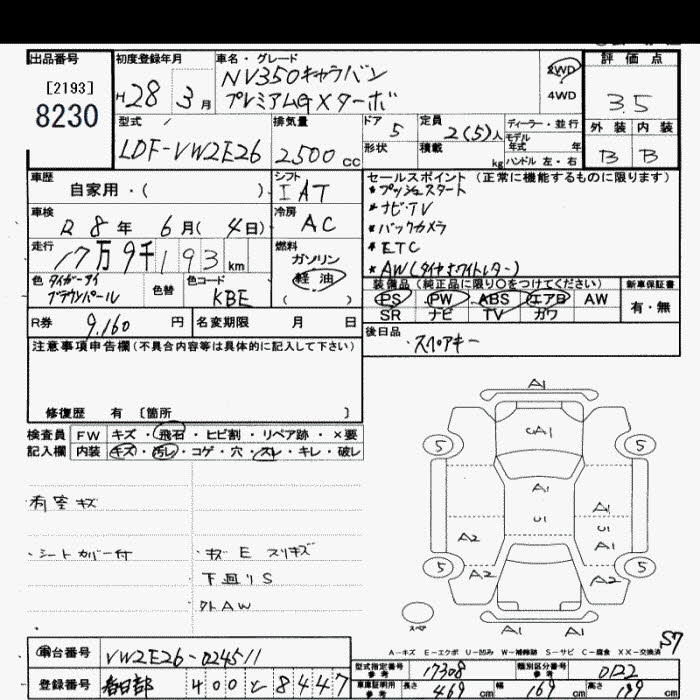 出品番号
[2193]
8230
初度登録年月
H28年 3月
車名・グレード
NV350キャラバン
プレミアムGXターボ
2WD
4WD
評価点
3.5
外装 内装
B B
型式
LDF-VW2E26
排気量
2500cc
ドア 5
形状
定員 2(5)人
積載 kg
ディーラー・並行
モデル年式 年式
ハンドル 左・右
車歴
自家用・( )
シフト
IAT
車検
R8年 6月(4日)
冷房
AC
走行
17万9千193km
燃料
ガソリン
軽油
( )
色 タイガーアイブラウンパール
色替
色コード KBE
セールスポイント (正常に機能するものに限ります)
*プッシュスタート
*ナビ・TV
*バックカメラ
*ETC
*AW(タイヤホワイトレター)
装備品(純正品に限り○をつけてください)
PS PW ABS エアB AW
SR ナビ TV カワ
新車保証書
有・無
R券 9,160円
名変期限 月 日
後日品
・スペアキー
注意事項申告欄(不具合内容等は具体的に記入して下さい)
修復歴 有 〔箇所 〕
検査員記入欄
FW キズ・飛石・ヒビ割・リペア跡・×要
内装 キズ・汚レ・コゲ・穴・スレ・キレ・破レ
・シートカバー付
・キズE スリキズ
下廻りS
外AW
A1
UA1
5 5
A1
U1
A1
U1
A1
A2
5 5
A2 A2
スペア
A1 A1
S7
A-キズ E-エクボ U-凹み W-補修跡 S-サビ C-腐食 XX-交換済
車台番号
VW2E26-024511
登録番号
春日部 400 と 8447
型式指定番号 参考 17308
類別区分番号 参考 0122
車庫証明用 参考 長さ 469cm 幅 169cm 高さ 199cm